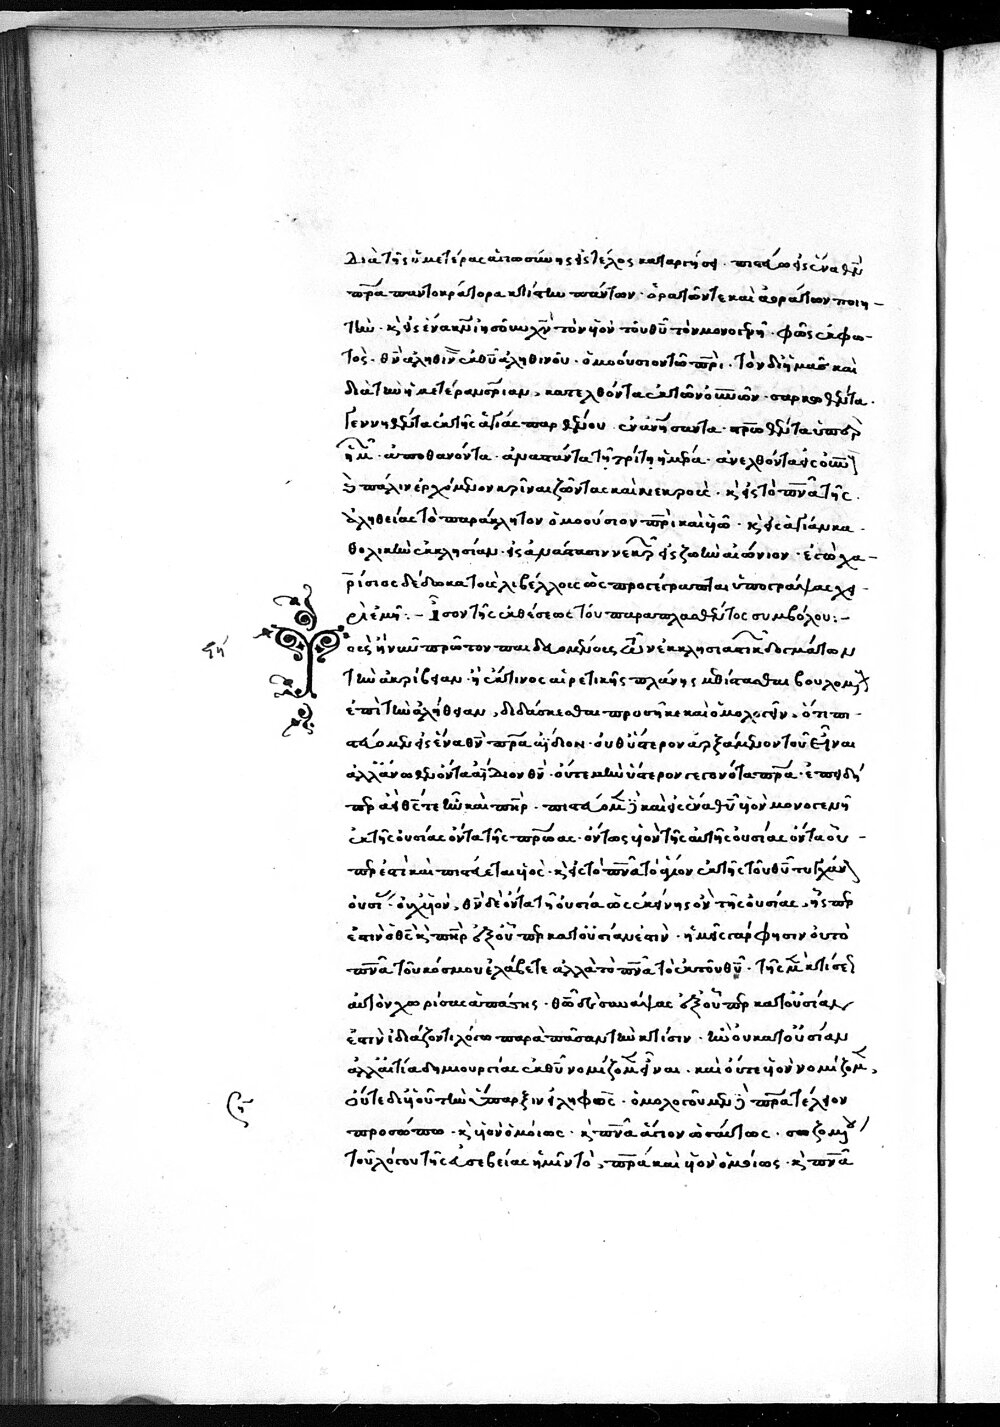 διὰ τῆς ὑμετέρας ἁγιωσύνης εἰς τέλος καταργήσει. πιστεύω εἰς ἕνα θν
πρα παντοκράτορα κτίστην πάντων. ὁρατῶν τε καὶ ἀοράτων ποιη-
τήν. κ εἰς ἕνα κν ἰησοῦν χν τὸν υἱὸν τοῦ θυ τὸν μονογενῆ. φῶς ἐκ φω-
τός. θν ἀληθινὸν ἐκ θυ ἀληθινοῦ. ὁμοούσιον τῶ πρι. τὸν δι' ἡμᾶς καὶ
διὰ τὴν ἡμετέραν σριαν, κατελθόντα ἐκ τῶν οὐνῶν. σαρκωθέντα.
γεννηθέντα ἐκ τῆς ἁγίας παρθένου. ἐνανήσαντα. στρωθέντα ὑπὲρ
ἡμ. ἀποθανόντα. ἀναστάντα τῆ τρίτη ἡμέρα. ἀνελθόντα εἰς οὐν
κ πάλιν ἐρχόμενον κρῖναι ζῶντας καὶ νεκρούς. κ εἰς τὸ πνα τῆς
ἀληθείας τὸ παράκλητον ὁμοούσιον πρι καὶ υἱῶ. κ εἰς ἁγίαν κα-
θολικὴν ἐκκλησίαν. εἰς ἀνάστασιν νεκρ εἰς ζωὴν αἰώνιον. ἐγὼ χα-
ρίσιος δέδωκα τοὺς λιβέλλους ὡς προγέγραπται ὑπογράψας χει-
ρὶ ἐμῆ:- Ἴσον τῆς ἐκθέσεως τοῦ παραπλασθέντος συμβόλου:-
ους ἢ νῦν πρῶτον παιδευομένους τῶν ἐκκλησιαστικ δογμάτων
τὴν ἀκρίβειαν. ἢ ἔκ τινος αἱρετικῆς πλάνης μεθίστασθαι βουλομένους
ἐπὶ τὴν ἀλήθειαν, διδάσκεσθαι προσῆκε καὶ ὁμολογεῖν, ὅτι πι-
στεύομεν εἰς ἕνα θν πρα ἀΐδιον. οὐθ' ὕστερον ἀρξάμενον τοῦ εἶναι
ἀλλ' ἄνωθεν ὄντα ἀΐδιον θν. οὔτε μὴν ὕστερον γεγονότα πρα. ἐπειδή
περ ἀεὶ θς τε ἦν καὶ πηρ. πιστεύομεν δὲ καὶ εἰς ἕνα θυ υἱὸν μονογενῆ
ἐκ τῆς οὐσίας ὄντα τῆς πρώας. ὄντως υἱὸν τῆς αὐτῆς οὐσίας ὄντα οὗ-
περ ἐστὶ καὶ πιστεύεται υἱός. κ εἰς τὸ πνα τὸ ἅγιον ἐκ τῆς τοῦ θυ τυγχάν
οὐσί. οὐχ υἱὸν, θν δὲ ὄντα τῆ οὐσία ὡς ἐκείνης ὂν τῆς οὐσίας, ἧσπερ
ἐστὶν ὁ θς κ πηρ ἐξ οὗπερ κατ' οὐσίαν ἐστίν. ἡμεῖς γάρ φησιν οὐ τὸ
πνα τοῦ κόσμου ἐλάβετε ἀλλὰ τὸ πνα τὸ ἐκ τοῦ θυ. τῆς μὲν κτίσε
αὐτὸν χωρίσας ἁπάσης. θῶ δὲ συνάψας ἐξ οὗπερ κατ' οὐσίαν
ἐστὶν ἰδιάζοντι λόγω παρὰ πᾶσαν τὴν κτίσιν. ἣν οὐ κατ' οὐσίαν
ἀλλ' αἰτία δημιουργίας ἐκ θυ νομίζομ εἶναι. καὶ οὔτε υἱὸν νομίζομ,
οὔτε δι' υἱοῦ τὴν ὕπαρξιν εἰληφός. ὁμολογοῦμεν δὲ πρα τέλειον
προσώπω. κ υἱὸν ὁμοίως. κ πνα ἅγιον ὡσαύτως. σωζομένου
τοῦ λόγου τῆς εὐσεβείας ἡμῖν τὸ, πρα καὶ υἱὸν ὁμοίως. κ πνα